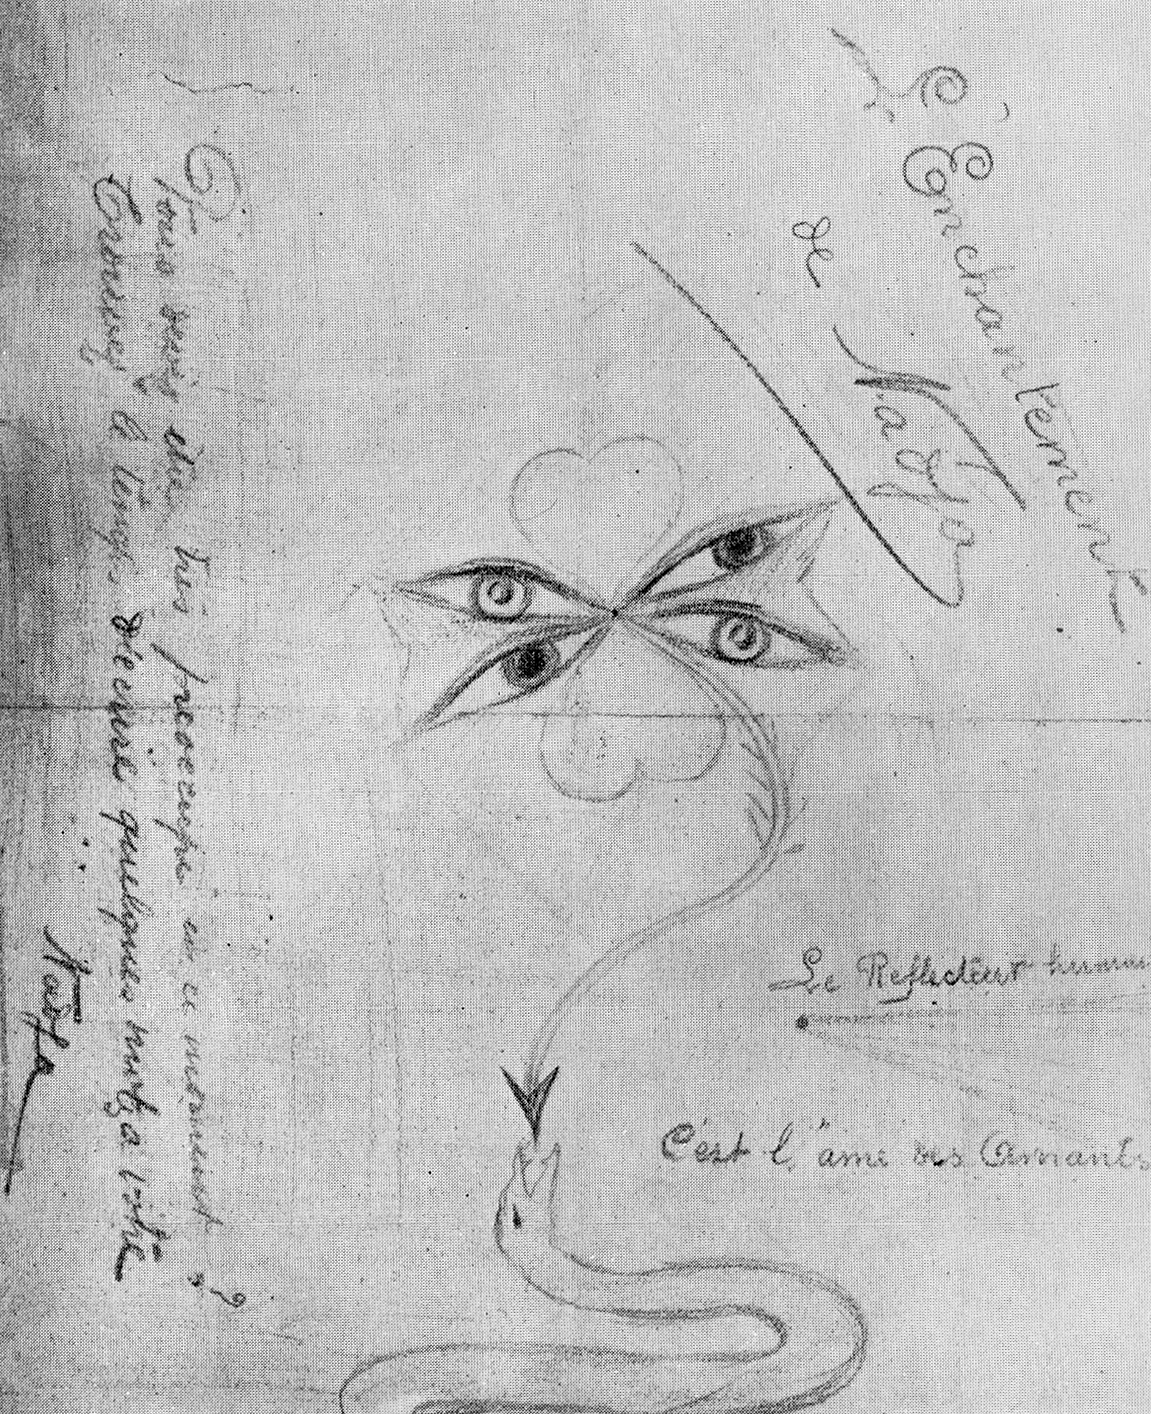 L'Enchantement
de Nadja
Le Reflecteur humai
C'est l'âme des Amants
très préoccupé en ce moment ?
Trouvez le temps d'écrire quelques mots a votre
Nadja